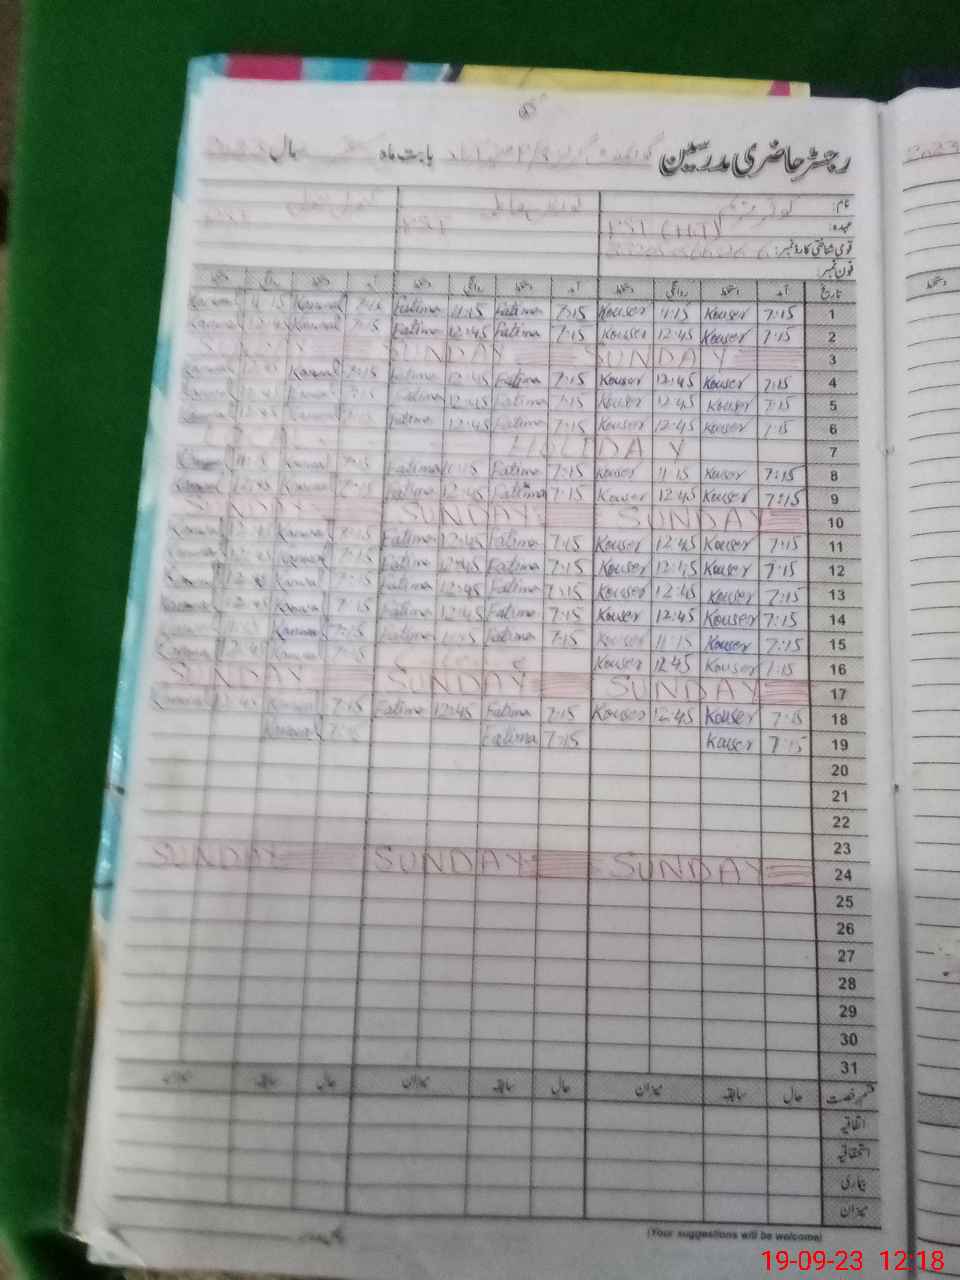 رجسٹر حاضری مدرسین بابت ماہ سال
نام:
عہدہ: PST (HT) PST
قومی شناختی کارڈ نمبر:
فون نمبر:
تاریخ آمد دستخط روانگی دستخط آمد دستخط روانگی دستخط آمد دستخط روانگی دستخط
1 7:15 Kouser 11:15 Kouser 7:15 Fatima 11:15 Fatima 7:15 Kanwal 11:15 Kanwal
2 7:15 Kouser 12:45 Kouser 7:15 Fatima 12:45 Fatima 7:15 Kanwal 12:45 Kanwal
3 SUNDAY SUNDAY SUNDAY
4 7:15 Kouser 12:45 Kouser 7:15 Fatima 12:45 Fatima 7:15 Kanwal 12:45
5 7:15 Kouser 12:45 Kouser 7:15 Fatima 12:45 Fatima 7:15
6 7:15 Kouser 12:45 Kouser 7:15 Fatima 12:45 Fatima 12:45
7 HOLIDAY
8 7:15 Kouser 11:15 Kouser 7:15 Fatima 11:15 Fatima 7:15 Kanwal 11:15
9 7:15 Kouser 12:45 Kouser 7:15 Fatima 12:45 Fatima 7:15 Kanwal 12:45 Kanwal
10 SUNDAY SUNDAY SUNDAY
11 7:15 Kouser 12:45 Kouser 7:15 Fatima 12:45 Fatima 7:15 Kanwal 12:45 Kanwal
12 7:15 Kouser 12:45 Kouser 7:15 Fatima 12:45 Fatima 7:15 Kanwal 12:45 Kanwal
13 7:15 Kouser 12:45 Kouser 7:15 Fatima 12:45 Fatima 7:15 Kanwal 12:45 Kanwal
14 7:15 Kouser 12:45 Kouser 7:15 Fatima 12:45 Fatima 7:15 Kanwal 12:45 Kanwal
15 7:15 Kouser 11:15 Kouser 7:15 Fatima 11:15 Fatima 7:15 Kanwal
16 7:15 Kouser 12:45 Kouser 7:15 Kanwal 12:45 Kanwal
17 SUNDAY SUNDAY SUNDAY
18 7:15 Kouser 12:45 Kouser 7:15 Fatima 12:45 Fatima 7:15 Kanwal 12:45 Kanwal
19 7:15 Kouser 7:15 Fatima 7:15 Kanwal
20
21
22
23
24 SUNDAY SUNDAY SUNDAY
25
26
27
28
29
30
31
قسم رخصت حال سابقہ میزان حال سابقہ میزان حال سابقہ میزان
اتفاقیہ
استحقاقیہ
بیماری
میزان
(Your suggestions will be welcome)
19-09-23 12:18